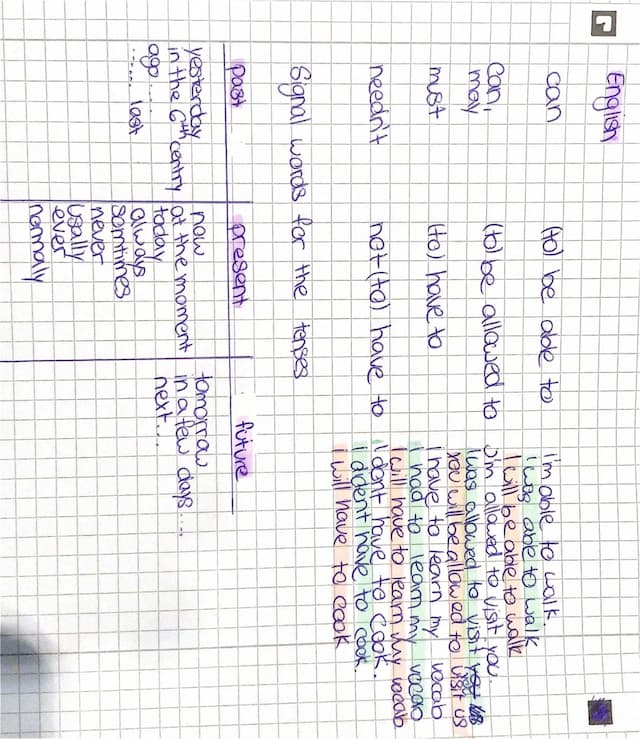 English
can (to) be able to I'm able to walk.
I was able to walk
I will be able to walk
can, (to) be allowed to I'm allowed to visit you.
may I was allowed to visit us
you will be allowed to visit us
must (to) have to I have to learn my vocab
I had to learn my vocab
I will have to learn my vocab
needn't not (to) have to I don't have to cook.
I dident have to cook.
I will have to cook
Signal words for the tenses
past present future
yesterday now tomorrow
in the 6th centry at the moment in a few days....
ago.... today next...
...... last always
somtimes
never
usally
ever
normally